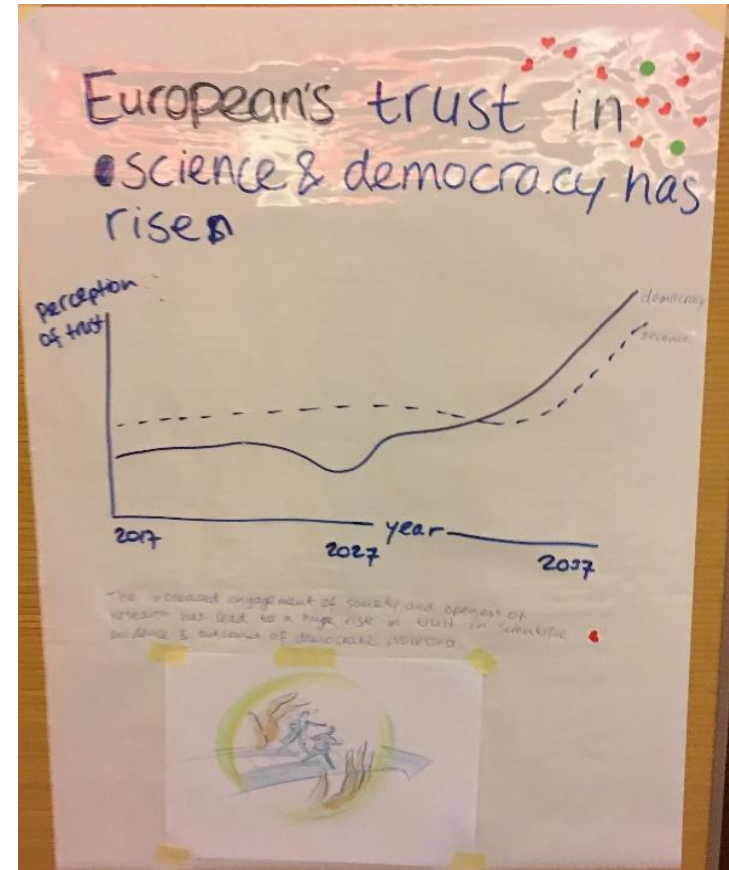 European's trust in
science & democracy has
risen
perception
of trust
democracy
science
year
2017
2027
2037
The increased engagement of society and openess of
research has lead to a huge rise in trust in scientific
evidence & outcomes of democratic processes.